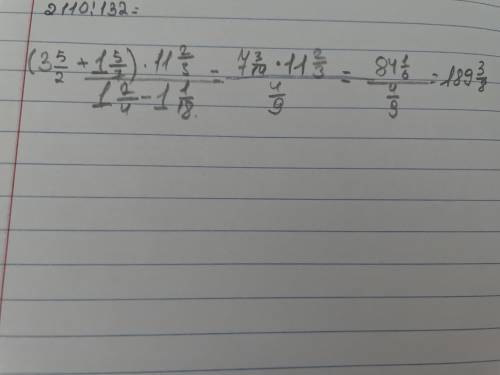 2110:132=
(3 5/2 + 1 5/7) · 11 2/3 / 1 2/4 - 1 1/18 = 7 3/14 · 11 2/3 / 4/9 = 84 1/6 / 4/9 = 189 3/8